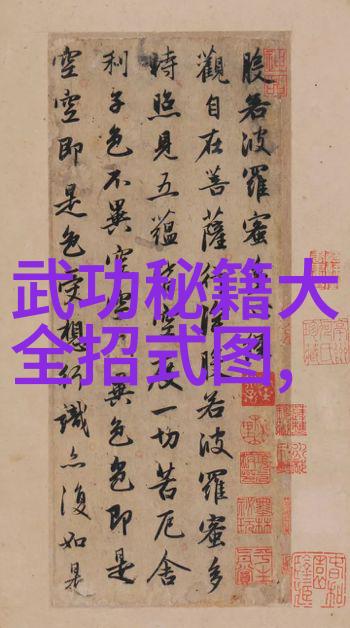 武功秘籍大
全招式图,
般若波羅蜜多心經
觀自在菩薩行深般若波羅蜜多
時照見五蘊皆空度一切苦厄舍
利子色不異空空不異色色即是
空空即是色受想行識亦復如是